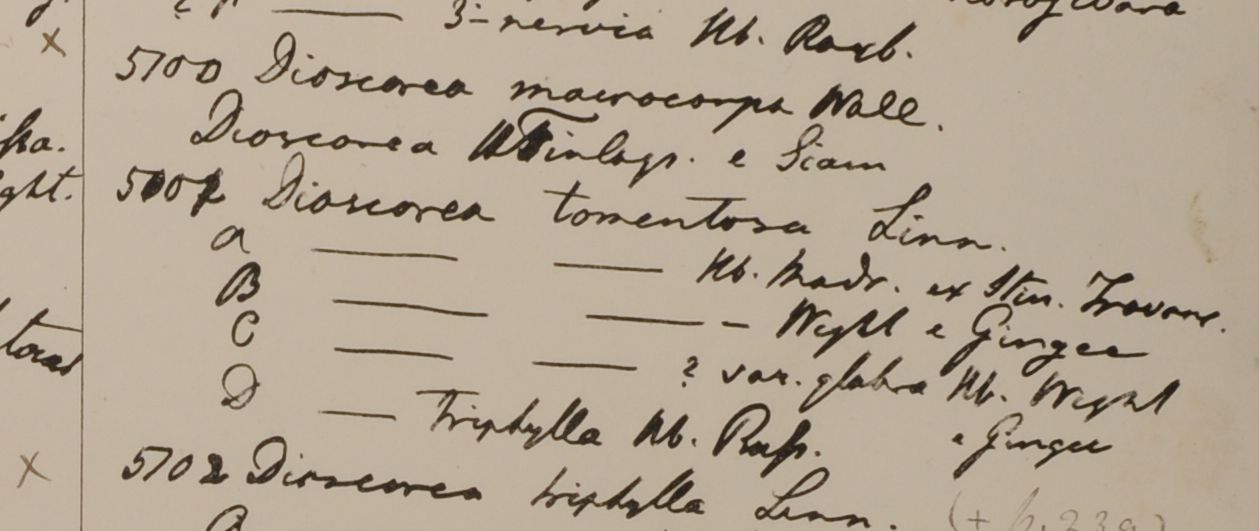 3-nervia Hb. Roxb.
5700 Dioscorea macrocarpa Wall.
Dioscorea Finlays. e Siam
Dioscorea tomentosa Linn.
a — — Hb. Madr. ex Itin. Travanc.
B — — - Wight e Gingee
C — — ? var. glabra Hb. Wight
e Gingee
D — triphylla Hb. Russ.
5702 Dioscorea triphylla Linn.